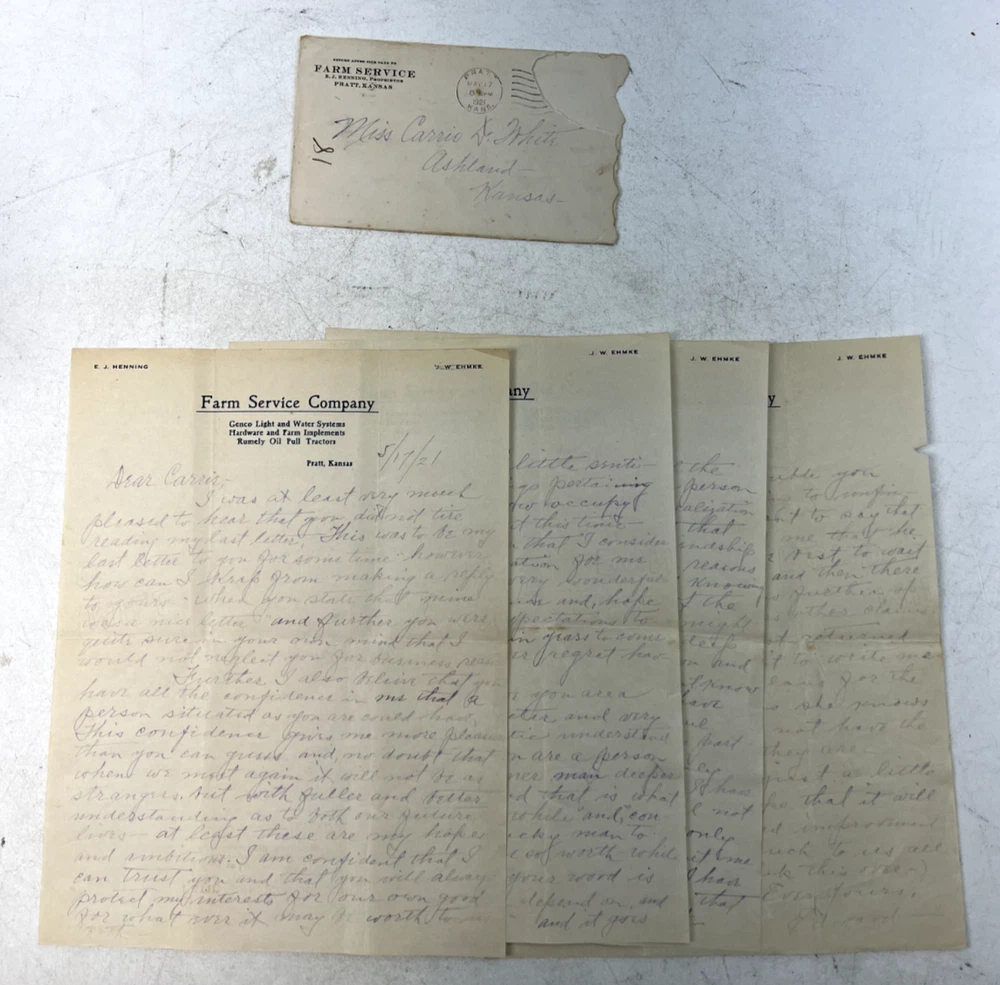 RETURN AFTER FIVE DAYS TO
FARM SERVICE
E. J. HENNING, PROPRIETOR
PRATT, KANSAS
PRATT
MAY 17
1921
KANS.
Miss Carrie D. White
Ashland—
Kansas—
18
E. J. HENNING
J. W. EHMKE
Farm Service Company
Genco Light and Water Systems
Hardware and Farm Implements
Rumely Oil Pull Tractors
Pratt, Kansas
5/17/21
Dear Carrie,
I was at least very much
pleased to hear that you did not tire
reading my last letter. This was to be my
last letter to you for some time however
how can I keep from making a reply
to yours when you state that mine
nice letter" and further you were
quite sure in your own mind that I
would not neglect you for business
Further I also believe that you
have all the confidence in me that a
person situated as you are could had.
This confidence gives me more pleasure
than you can guess and no doubt that
when we meet again it will not be as
strangers. but with fuller and better
understanding as to both our future
lives— at least these are my hopes
and ambitions. I am confident that I
can trust you and that you will always
protect my interests for our own good
for what ever it may be worth to
J. W. EHMKE
ny
little senti-
gs pertaining
now occupy
t this time—
that "I consider
ation for me
very wonderful
and, hope
pectations to
in years to come
regret have
you are a
and very
understand
are a person
man deeper
d that is what
while and con
cky man to
so worth while
your word is
depend on, and
and it goes
J. W. EHMKE
the
person
alization
that
ndship
reasons
Knowing
the
might
and
know
have
last
has
not
only
it me
have
that
J. W. EHMKE
y
able you
to
t to say that
me that he
best to wait
and then there
further
either claims
returned
t to write me
for the
she knows
not have the
they are—
just a little
that it will
d improvement
to us all
k this over—
Ever Yours,